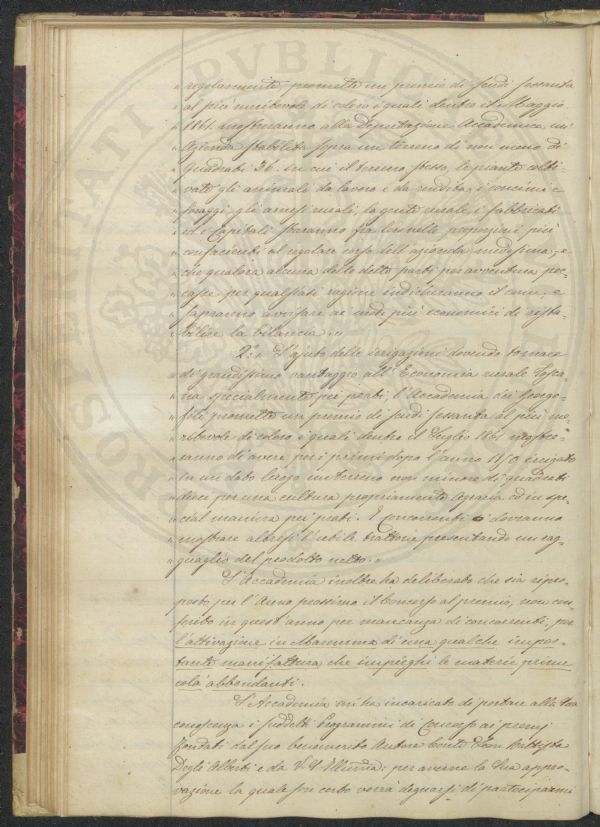 PROSPERITATI PVBLICAE
" regolarmente, promette un premio di scudi sessanta
" al più meritevole di coloro i quali dentro il Maggio
" 1861 mostreranno alla Deputazione Accademica un'
" Azienda stabilita sopra un terreno di non meno di
" quadrati 36 in cui il terreno stesso, le piante colti-
" vate gli animali da lavoro e da rendita, i concimi e
" foraggi, gli arnesi rurali, la gente rurale, i fabbricati
" ed i Capitali staranno fra loro nelle proporzioni più
" confacienti al regolare corso dell'azienda medesima, e
" che qualora alcuna delle dette parti per avventura pec-
" casse per qualsiasi ragione indicheranno il come, e
" sapranno avvisare ai modi più economici di rista-
" bilire la bilancia. "
2.° " L'ajuto delle irrigazioni dovendo tornare
" di grandissimo vantaggio all'Economia rurale Tosca-
" na specialmente pei prati, l'Accademia dei Georgo-
" fili promette un premio di scudi sessanta al più me-
" ritevole di coloro i quali dentro il Luglio 1861 mostre-
" ranno di avere per i primi dopo l'anno 1850 irrigato
" in un dato luogo un terreno non minore di quadrati
" dieci per una cultura propriamente agraria ed in spe-
" cial maniera pei prati. I concorrenti dovranno
" mostrare altresì l'utile trattone presentando un rag-
" guaglio del prodotto netto. "
L'Accademia inoltre ha deliberato che sia ripro-
posto per l'Anno prossimo il Concorso al premio, non con-
ferito in quest'anno per mancanza di concorrenti, per
l'attivazione in Maremma di una qualche impor-
tante manifattura che impieghi le materie prime
colà abbondanti.
L'Accademia mi ha incaricato di portare alla Sua
conoscenza i suddetti Programmi di Concorso ai premj
fondati dal suo benemerito Autore Conte Gian Battista
Degli Alberti e da V. S. Illma: per averne la Sua appro-
vazione la quale son certo vorrà degnarsi di parteciparmi